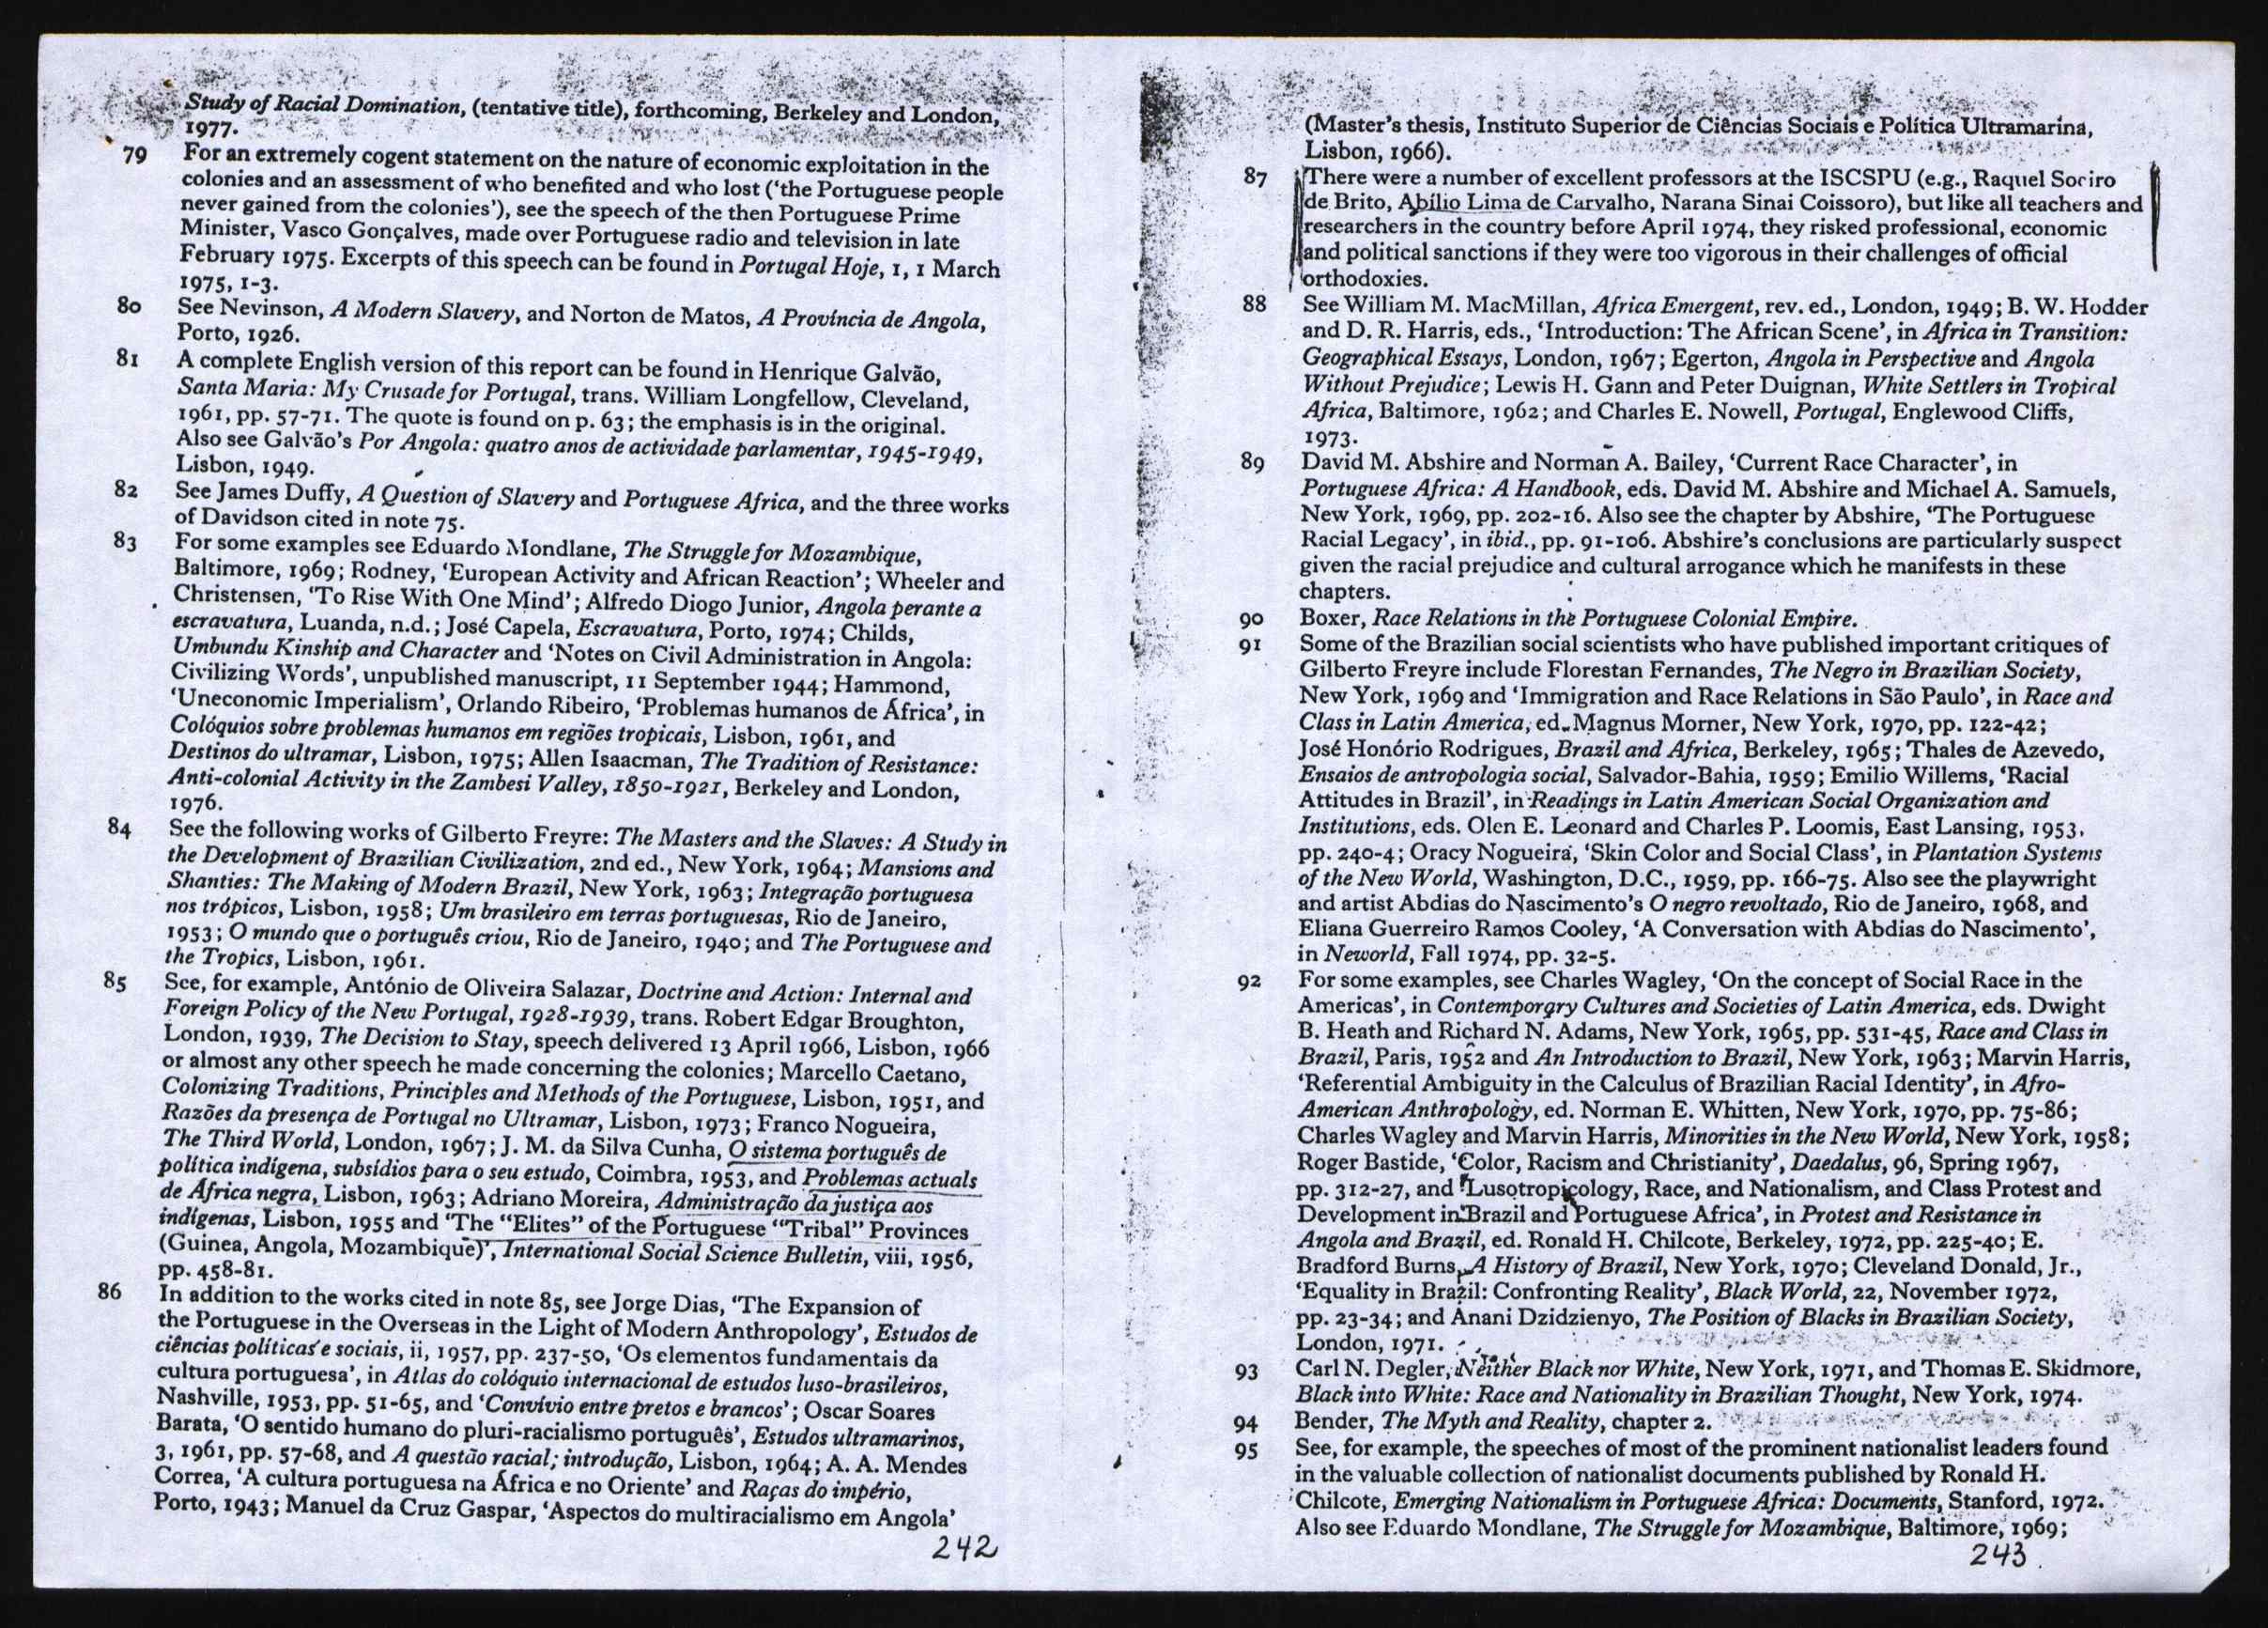 Study of Racial Domination, (tentative title), forthcoming, Berkeley and London,
1977.
79 For an extremely cogent statement on the nature of economic exploitation in the
colonies and an assessment of who benefited and who lost (‘the Portuguese people
never gained from the colonies’), see the speech of the then Portuguese Prime
Minister, Vasco Gonçalves, made over Portuguese radio and television in late
February 1975. Excerpts of this speech can be found in Portugal Hoje, 1, 1 March
1975, 1-3.
80 See Nevinson, A Modern Slavery, and Norton de Matos, A Província de Angola,
Porto, 1926.
81 A complete English version of this report can be found in Henrique Galvão,
Santa Maria: My Crusade for Portugal, trans. William Longfellow, Cleveland,
1961, pp. 57-71. The quote is found on p. 63; the emphasis is in the original.
Also see Galvão’s Por Angola: quatro anos de actividade parlamentar, 1945-1949,
Lisbon, 1949.
82 See James Duffy, A Question of Slavery and Portuguese Africa, and the three works
of Davidson cited in note 75.
83 For some examples see Eduardo Mondlane, The Struggle for Mozambique,
Baltimore, 1969; Rodney, ‘European Activity and African Reaction’; Wheeler and
Christensen, ‘To Rise With One Mind’; Alfredo Diogo Junior, Angola perante a
escravatura, Luanda, n.d.; José Capela, Escravatura, Porto, 1974; Childs,
Umbundu Kinship and Character and ‘Notes on Civil Administration in Angola:
Civilizing Words’, unpublished manuscript, 11 September 1944; Hammond,
‘Uneconomic Imperialism’, Orlando Ribeiro, ‘Problemas humanos de África’, in
Colóquios sobre problemas humanos em regiões tropicais, Lisbon, 1961, and
Destinos do ultramar, Lisbon, 1975; Allen Isaacman, The Tradition of Resistance:
Anti-colonial Activity in the Zambesi Valley, 1850-1921, Berkeley and London,
1976.
84 See the following works of Gilberto Freyre: The Masters and the Slaves: A Study in
the Development of Brazilian Civilization, 2nd ed., New York, 1964; Mansions and
Shanties: The Making of Modern Brazil, New York, 1963; Integração portuguesa
nos trópicos, Lisbon, 1958; Um brasileiro em terras portuguesas, Rio de Janeiro,
1953; O mundo que o português criou, Rio de Janeiro, 1940; and The Portuguese and
the Tropics, Lisbon, 1961.
85 See, for example, António de Oliveira Salazar, Doctrine and Action: Internal and
Foreign Policy of the New Portugal, 1928-1939, trans. Robert Edgar Broughton,
London, 1939, The Decision to Stay, speech delivered 13 April 1966, Lisbon, 1966
or almost any other speech he made concerning the colonies; Marcello Caetano,
Colonizing Traditions, Principles and Methods of the Portuguese, Lisbon, 1951, and
Razões da presença de Portugal no Ultramar, Lisbon, 1973; Franco Nogueira,
The Third World, London, 1967; J. M. da Silva Cunha, O sistema português de
política indígena, subsídios para o seu estudo, Coimbra, 1953, and Problemas actuals
de África negra, Lisbon, 1963; Adriano Moreira, Administração da justiça aos
indígenas, Lisbon, 1955 and ‘The “Elites” of the Portuguese “Tribal” Provinces
(Guinea, Angola, Mozambique)’, International Social Science Bulletin, viii, 1956,
pp. 458-81.
86 In addition to the works cited in note 85, see Jorge Dias, ‘The Expansion of
the Portuguese in the Overseas in the Light of Modern Anthropology’, Estudos de
ciências políticas e sociais, ii, 1957, pp. 237-50, ‘Os elementos fundamentais da
cultura portuguesa’, in Atlas do colóquio internacional de estudos luso-brasileiros,
Nashville, 1953, pp. 51-65, and ‘Convívio entre pretos e brancos’; Oscar Soares
Barata, ‘O sentido humano do pluri-racialismo português’, Estudos ultramarinos,
3, 1961, pp. 57-68, and A questão racial; introdução, Lisbon, 1964; A. A. Mendes
Correa, ‘A cultura portuguesa na África e no Oriente’ and Raças do império,
Porto, 1943; Manuel da Cruz Gaspar, ‘Aspectos do multiracialismo em Angola’
242
(Master’s thesis, Instituto Superior de Ciências Sociais e Política Ultramarina,
Lisbon, 1966).
87 There were a number of excellent professors at the ISCSPU (e.g., Raquel Soeiro
de Brito, Abílio Lima de Carvalho, Narana Sinai Coissoro), but like all teachers and
researchers in the country before April 1974, they risked professional, economic
and political sanctions if they were too vigorous in their challenges of official
orthodoxies.
88 See William M. MacMillan, Africa Emergent, rev. ed., London, 1949; B. W. Hodder
and D. R. Harris, eds., ‘Introduction: The African Scene’, in Africa in Transition:
Geographical Essays, London, 1967; Egerton, Angola in Perspective and Angola
Without Prejudice; Lewis H. Gann and Peter Duignan, White Settlers in Tropical
Africa, Baltimore, 1962; and Charles E. Nowell, Portugal, Englewood Cliffs,
1973.
89 David M. Abshire and Norman A. Bailey, ‘Current Race Character’, in
Portuguese Africa: A Handbook, eds. David M. Abshire and Michael A. Samuels,
New York, 1969, pp. 202-16. Also see the chapter by Abshire, ‘The Portuguese
Racial Legacy’, in ibid., pp. 91-106. Abshire’s conclusions are particularly suspect
given the racial prejudice and cultural arrogance which he manifests in these
chapters.
90 Boxer, Race Relations in the Portuguese Colonial Empire.
91 Some of the Brazilian social scientists who have published important critiques of
Gilberto Freyre include Florestan Fernandes, The Negro in Brazilian Society,
New York, 1969 and ‘Immigration and Race Relations in São Paulo’, in Race and
Class in Latin America, ed. Magnus Morner, New York, 1970, pp. 122-42;
José Honório Rodrigues, Brazil and Africa, Berkeley, 1965; Thales de Azevedo,
Ensaios de antropologia social, Salvador-Bahia, 1959; Emilio Willems, ‘Racial
Attitudes in Brazil’, in Readings in Latin American Social Organization and
Institutions, eds. Olen E. Leonard and Charles P. Loomis, East Lansing, 1953,
pp. 240-4; Oracy Nogueira, ‘Skin Color and Social Class’, in Plantation Systems
of the New World, Washington, D.C., 1959, pp. 166-75. Also see the playwright
and artist Abdias do Nascimento’s O negro revoltado, Rio de Janeiro, 1968, and
Eliana Guerreiro Ramos Cooley, ‘A Conversation with Abdias do Nascimento’,
in Neworld, Fall 1974, pp. 32-5.
92 For some examples, see Charles Wagley, ‘On the concept of Social Race in the
Americas’, in Contemporary Cultures and Societies of Latin America, eds. Dwight
B. Heath and Richard N. Adams, New York, 1965, pp. 531-45, Race and Class in
Brazil, Paris, 1952 and An Introduction to Brazil, New York, 1963; Marvin Harris,
‘Referential Ambiguity in the Calculus of Brazilian Racial Identity’, in Afro-
American Anthropology, ed. Norman E. Whitten, New York, 1970, pp. 75-86;
Charles Wagley and Marvin Harris, Minorities in the New World, New York, 1958;
Roger Bastide, ‘Color, Racism and Christianity’, Daedalus, 96, Spring 1967,
pp. 312-27, and ‘Lusotropicology, Race, and Nationalism, and Class Protest and
Development in Brazil and Portuguese Africa’, in Protest and Resistance in
Angola and Brazil, ed. Ronald H. Chilcote, Berkeley, 1972, pp. 225-40; E.
Bradford Burns, A History of Brazil, New York, 1970; Cleveland Donald, Jr.,
‘Equality in Brazil: Confronting Reality’, Black World, 22, November 1972,
pp. 23-34; and Anani Dzidzienyo, The Position of Blacks in Brazilian Society,
London, 1971.
93 Carl N. Degler, Neither Black nor White, New York, 1971, and Thomas E. Skidmore,
Black into White: Race and Nationality in Brazilian Thought, New York, 1974.
94 Bender, The Myth and Reality, chapter 2.
95 See, for example, the speeches of most of the prominent nationalist leaders found
in the valuable collection of nationalist documents published by Ronald H.
Chilcote, Emerging Nationalism in Portuguese Africa: Documents, Stanford, 1972.
Also see Eduardo Mondlane, The Struggle for Mozambique, Baltimore, 1969;
243